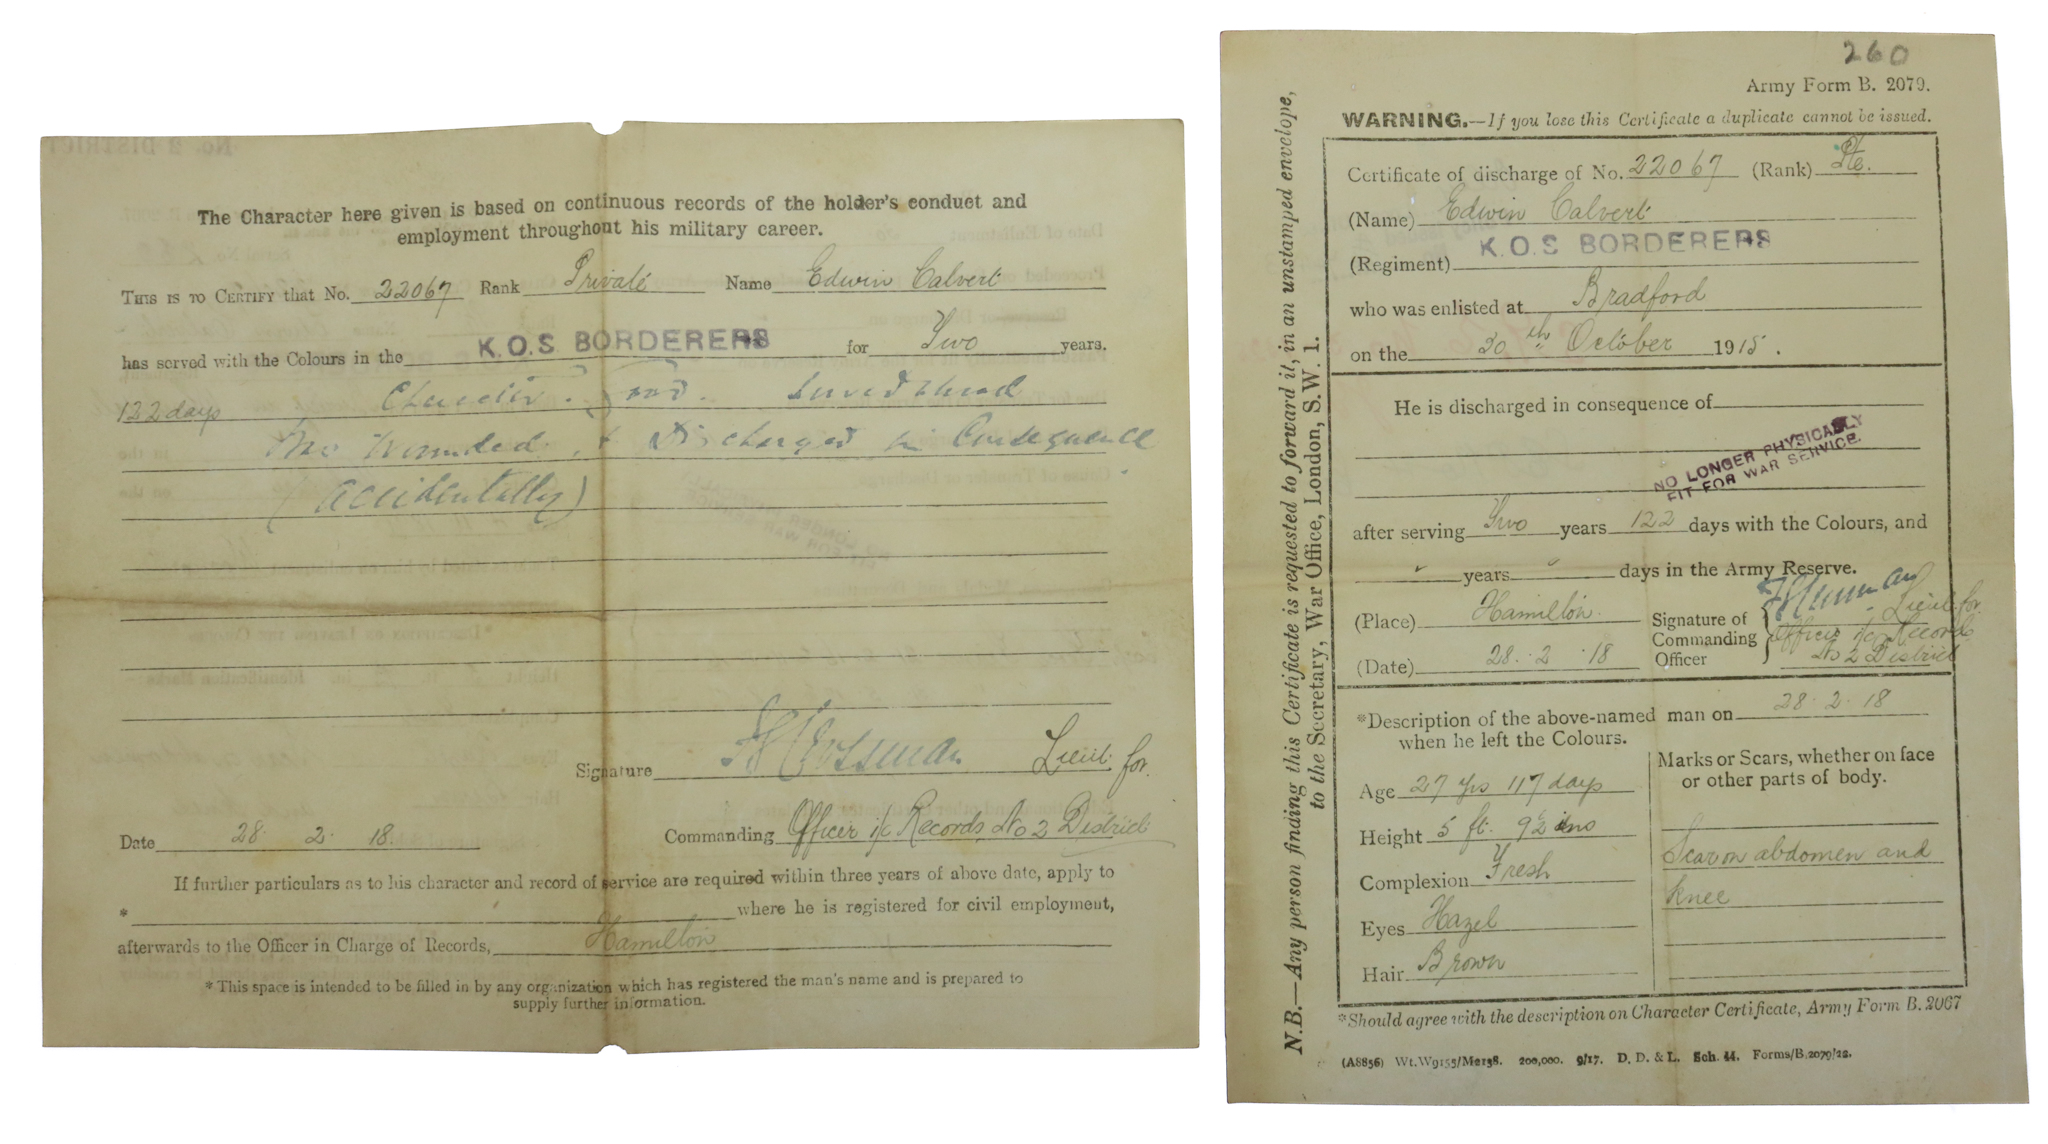 No. 2 DISTRICT
The Character here given is based on continuous records of the holder's conduct and
employment throughout his military career.
THIS IS TO CERTIFY that No. 22067 Rank Private Name Edwin Calvert
has served with the Colours in the K.O.S BORDERERS for Two years.
122 days Character. Good. Served abroad
Was Wounded, & Discharged in Consequence
(accidentally)
Signature Lieut for
Date 28. 2. 18. Commanding Officer i/c Records No 2 District
If further particulars as to his character and record of service are required within three years of above date, apply to
* where he is registered for civil employment,
afterwards to the Officer in Charge of Records, Hamilton
* This space is intended to be filled in by any organization which has registered the man's name and is prepared to
supply further information.
260
Army Form B. 2079.
WARNING.—If you lose this Certificate a duplicate cannot be issued.
N.B.—Any person finding this Certificate is requested to forward it, in an unstamped envelope,
to the Secretary, War Office, London, S.W. 1.
Certificate of discharge of No. 22067 (Rank) Pte.
(Name) Edwin Calvert
(Regiment) K.O.S BORDERERS
who was enlisted at Bradford
on the 30th October 1915.
He is discharged in consequence of
NO LONGER PHYSICALLY
FIT FOR WAR SERVICE.
after serving Two years 122 days with the Colours, and
" years " days in the Army Reserve.
(Place) Hamilton. Signature of Commanding Officer Lieut for
Officer i/c Records
(Date) 28. 2. 18 No 2 District
*Description of the above-named man on 28. 2. 18
when he left the Colours.
Marks or Scars, whether on face
or other parts of body.
Age 27 yrs 117 days
Height 5 ft. 9½ ins
Complexion Fresh
Eyes Hazel
Hair Brown
Scar on abdomen and
knee
*Should agree with the description on Character Certificate, Army Form B. 2067
(A8856) Wt.W9155/M2138. 200,000. 9/17. D. D. & L. Sch. 44. Forms/B.2079/22.